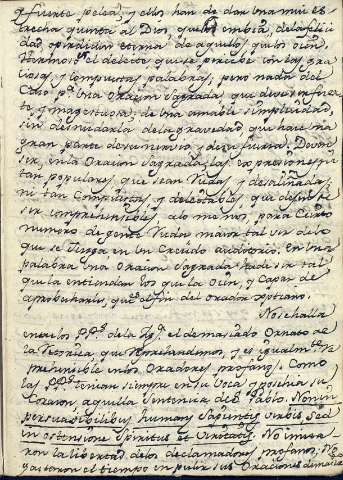 fuerte pelea, y ellos han de dar una mui es
trecha quenta al Dios que los embia, de la felici
dad, o privacion eterna de aquellos, que los oien.
el deleite que se percibe con las gra
ciosas, y compuestas palabras, pero nada del
caso pa una Oracion Sagrada, que deve ser fuer
te y magestuosa, de una amable simplicidad,
sin desnudarla de la gravedad que hace una
gran parte de su nervio y de su fuerza. Deven
ser en la Oracion Sagrada las expresiones, ni
tan populares que sean rudas, y desaliñadas,
ni tan compuestas, y delectables, que dejen de
ser comprensibles, a lo menos, para cierto
numero de gente ruda, maior tal vez de lo
que se juzga en un crecido auditorio. En una
palabra una Oracion Sagrada ha de ser tal
que la entiendan los que la oien, y capaz de
aprobecharlos, que es el fin del Orador Xptiano.
No se halla
en los PPs de la Iga el demasiado Ornato de
la Retorica, que reprehendemos, y es igualmte re
prehensible en los Oradores profanos. Como
las PPs tenian siempre en su boca, y posehia su
Corazon aquella Sentencia de S. Pablo. Non in
persuasibilibus humanæ Sapientiæ Verbis, Sed
in ostensione Spiritus et Virtutis. No imita
ron la libertad de los declamadores profanos: No
gastaron el tiempo en pulir sus Oraciones demasia